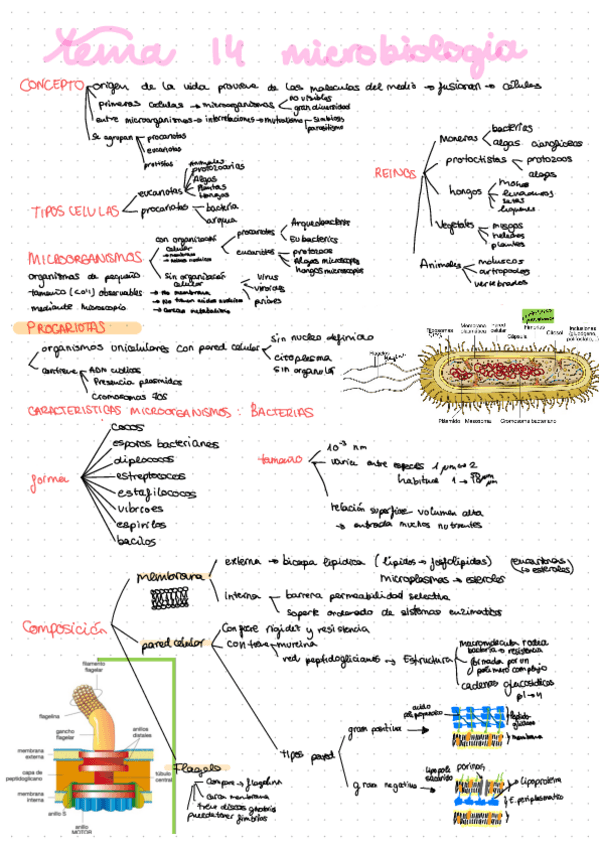 tema 14 microbiologia
CONCEPTO
origen de la vida proviene de las moleculas del medio → fusionan → células
primeras celulas → microorganismos
no visibles
gran diversidad
entre microorganismos → interrelaciones → mutualismo
simbiosis
parasitismo
Se agrupan
procariotas
eucariotas
protistas
TIPOS CELULAS
eucariotas
animales
protozoarios
Algas
Plantas
hongos
procariotas
bacteria
arquea
REINOS
Moneras
bacterias
algas
protoctistas
protozoos
algas
hongos
Mohos
levaduras
setas
liquenes
Vegetales
musgos
helechos
plantas
Animales
moluscos
artropodos
vertebrados
MICROORGANISMOS
organismos de pequeño
tamaño observables
mediante microscopio
con organización
celular
procariotas
Arqueobacterias
Eubacterias
eucariotas
protozoos
Algas microscopicas
hongos microscopicos
Sin organización
celular
→ No membrana
→ No tienen acidos nucleicos
→ Carecen metabolismo
Virus
viroides
priones
PROCARIOTAS
organismos unicelulares con pared celular
sin nucleo definido
citoplasma
sin organulos
contiene
ADN
Presencia plasmidos
Cromosomas 70S
Ribosomas
Membrana
plasmática
Pared
celular
Fimbrias
Cápsula
Citosol
Inclusiones
Flagelo
Plásmido
Mesosoma
Cromosoma bacteriano
CARACTERISTICAS MICROORGANISMOS : BACTERIAS
forma
cocos
esporas bacterianas
diplococos
estreptococos
estafilococos
vibriones
espirilos
bacilos
tamaño
10⁻³ nm
varia entre especies
habitual
relación superficie - volumen alta
→ entrada muchos nutrientes
Composición
membrana
externa → bicapa lipidica ( lipidos → fosfolipidos)
microplasmas → esteroles
interna
barrera permeabilidad selectiva
soporte ordenado de sistemas enzimaticos
pared celular
Confiere rigidez y resistencia
contiene mureina
red peptidoglicanos → Estructura
bacteria → resistencia
formada por un
polimero complejo
cadenas
tipos pared
gram positiva
acido
membrana
gram negativa
porinas
lipoproteina
E. periplasmatico
Flagelo
flagelina
filamento
flagelar
flagelina
gancho
flagelar
anillos
distales
membrana
externa
capa de
peptidoglicano
membrana
interna
túbulo
central
anillo S
anillo
MOTOR